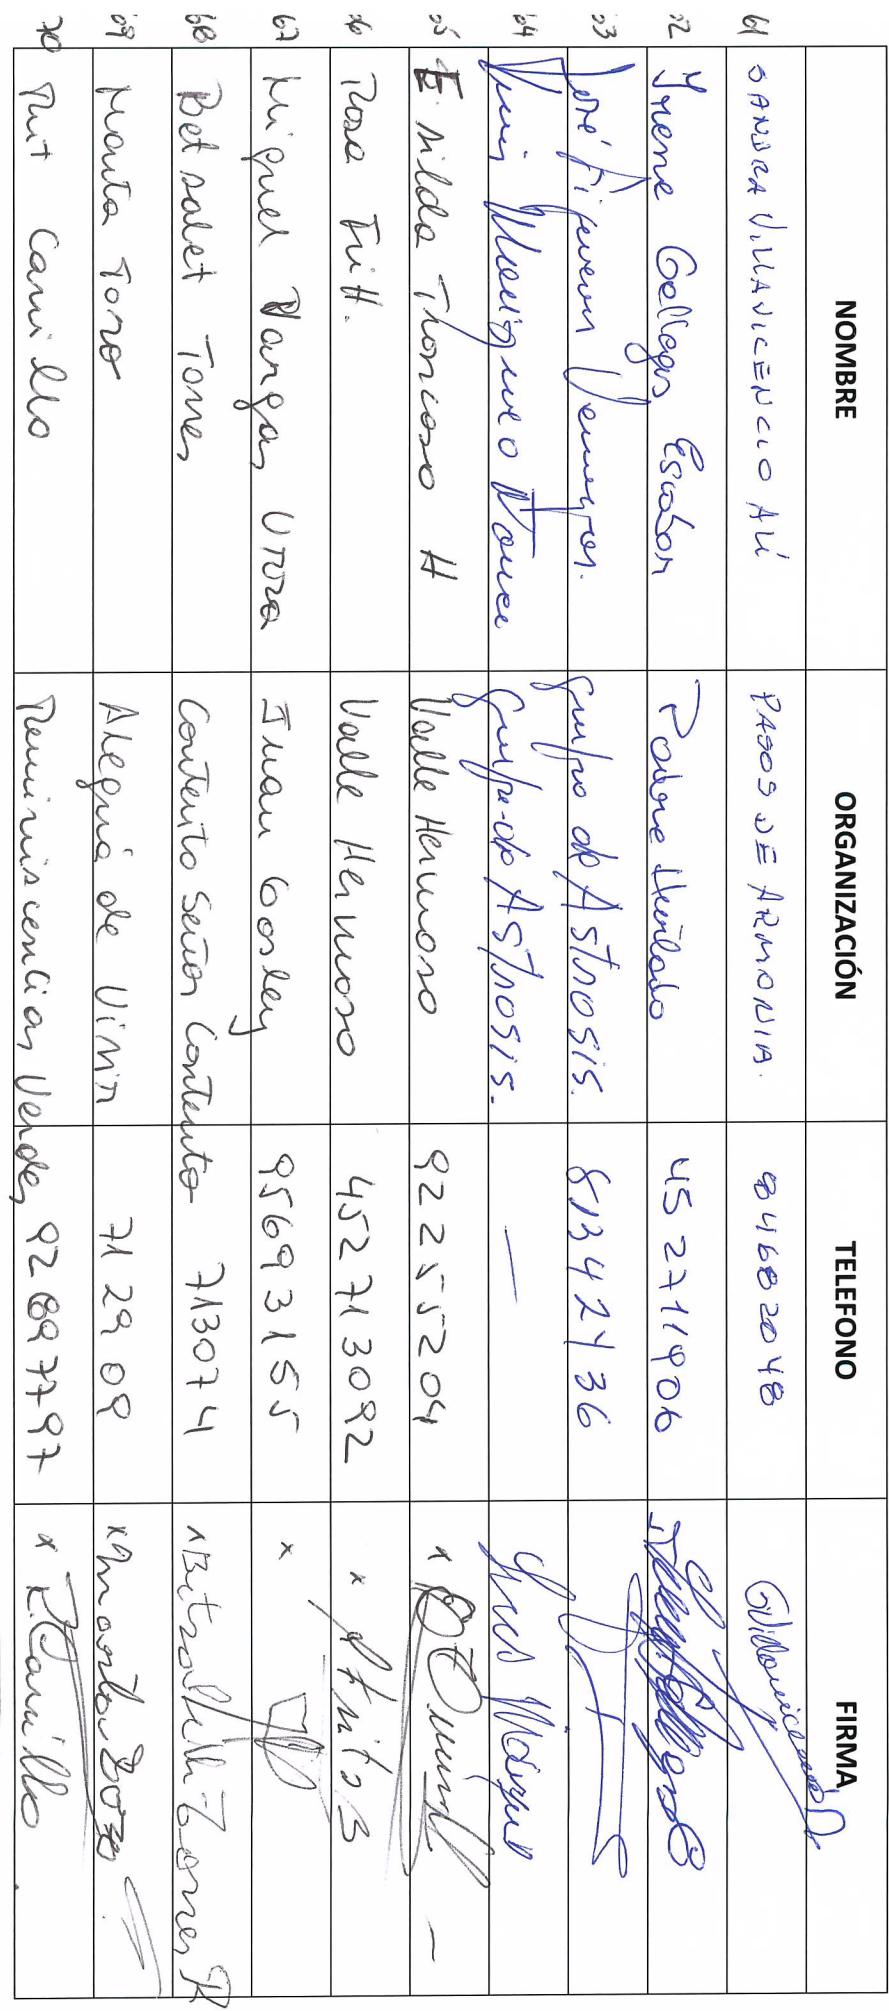 NOMBRE ORGANIZACIÓN TELEFONO FIRMA
61 SANDRA VILLAVICENCIO ALÍ PASOS DE ARMONIA. 84682048
62 Irene Gallegos Escobar Padre Hurtado 45 2711906
63 José Figueroa Venegas. Grupo de Astrosis. 81342436
64 Mariqueo Grupo de Astrosis. —
65 Troncoso H Valle Hermoso 92255204
66 Rosa Fritt. Valle Hermoso 452713092
67 Miguel Vargas Urra Juan Cosley 95693155
68 Betsabet Torres Contento Señor Contento 713074
69 Marta Toro Alegría de Vivir 712909 x Marta Toro
70 Rut Carrillo Reminiscencias Verdes 92897797 x R Carrillo